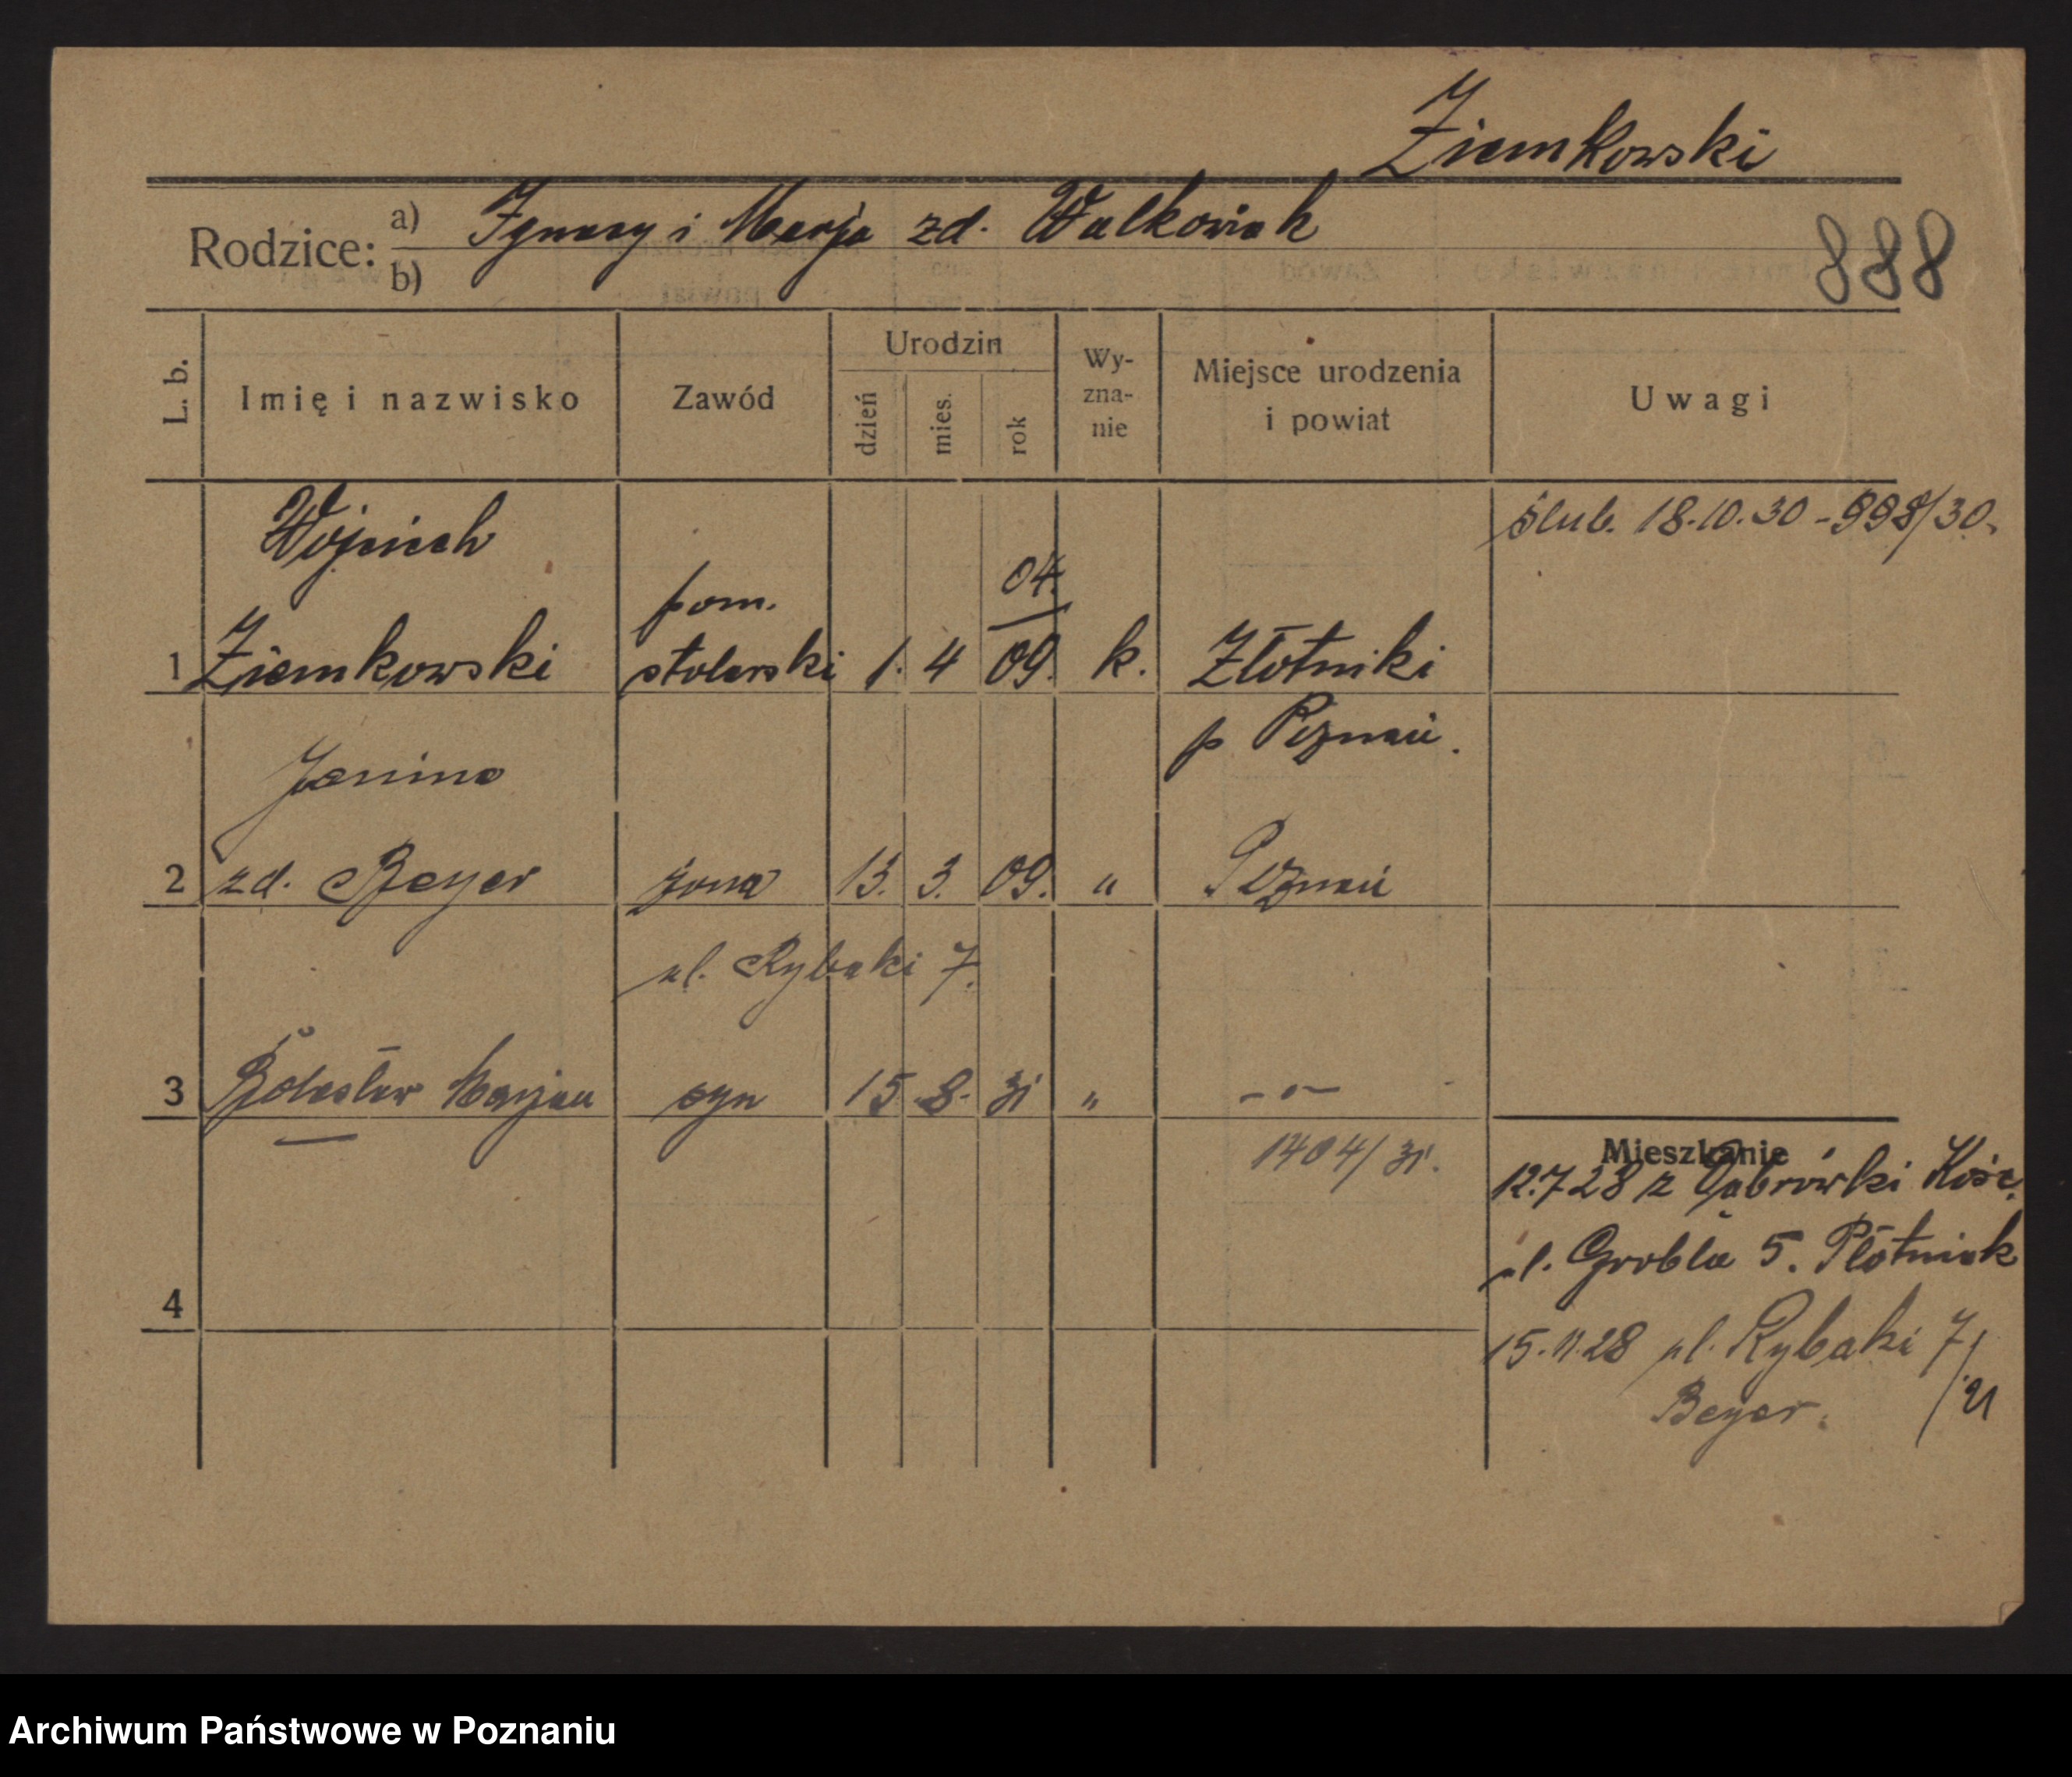 Ziemkowski
Rodzice: a) Ignacy i Marja zd. Walkowiak
b)
888
L. b.
Imię i nazwisko
Zawód
Urodzin
dzień
mies.
rok
Wy-
zna-
nie
Miejsce urodzenia
i powiat
Uwagi
Wojciech
ślub. 18.10.30 - 998/30.
04.
pom.
1 Ziemkowski stolarski 1. 4 09. k. Złotniki
p Poznań.
Janina
2 zd. Beyer żona 13. 3. 09. " Poznań
ul. Rybaki 7.
3 Bolesław Marjan syn 15. 8. 31 " -"-
1404/31.
Mieszkanie
12.7 28 z Dąbrówki Kośc.
ul. Grobla 5. Płótniak
4
15.11.28 ul. Rybaki 7/
Beyer.
Archiwum Państwowe w Poznaniu